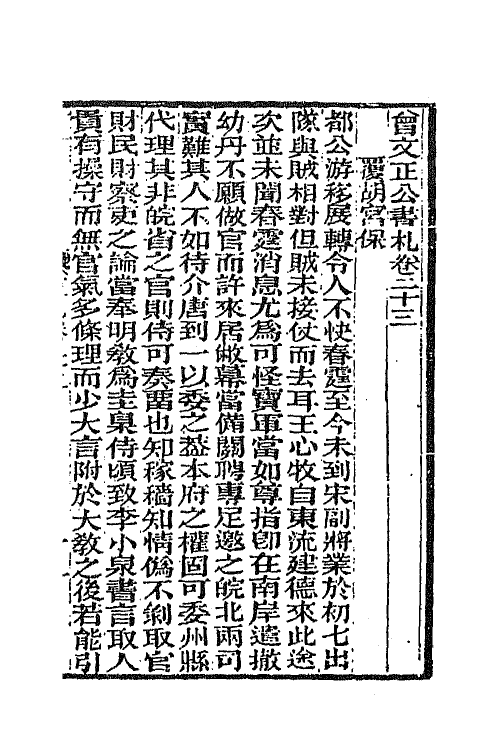 曾文正公書札卷二十三
覆胡宮保
都公游移展轉令人不快春霆至今未到宋副將業於初七出
隊與賊相對但賊未接仗而去耳王心牧自東流建德來此途
次並未聞春霆消息尤為可怪寶軍當如尊指卽在南岸遣撤
幼丹不願做官而許來居敝幕當備關聘專足邀之皖北兩司
實難其人不如待介唐到一以委之葢本府之權固可委州縣
代理其非皖省之官則侍可奏畱也知稼穡知情僞不剝取官
財民財察吏之論當奉明敎為圭臬侍頃致李小泉書言取人
貴有操守而無官氣多條理而少大言附於大敎之後若能引